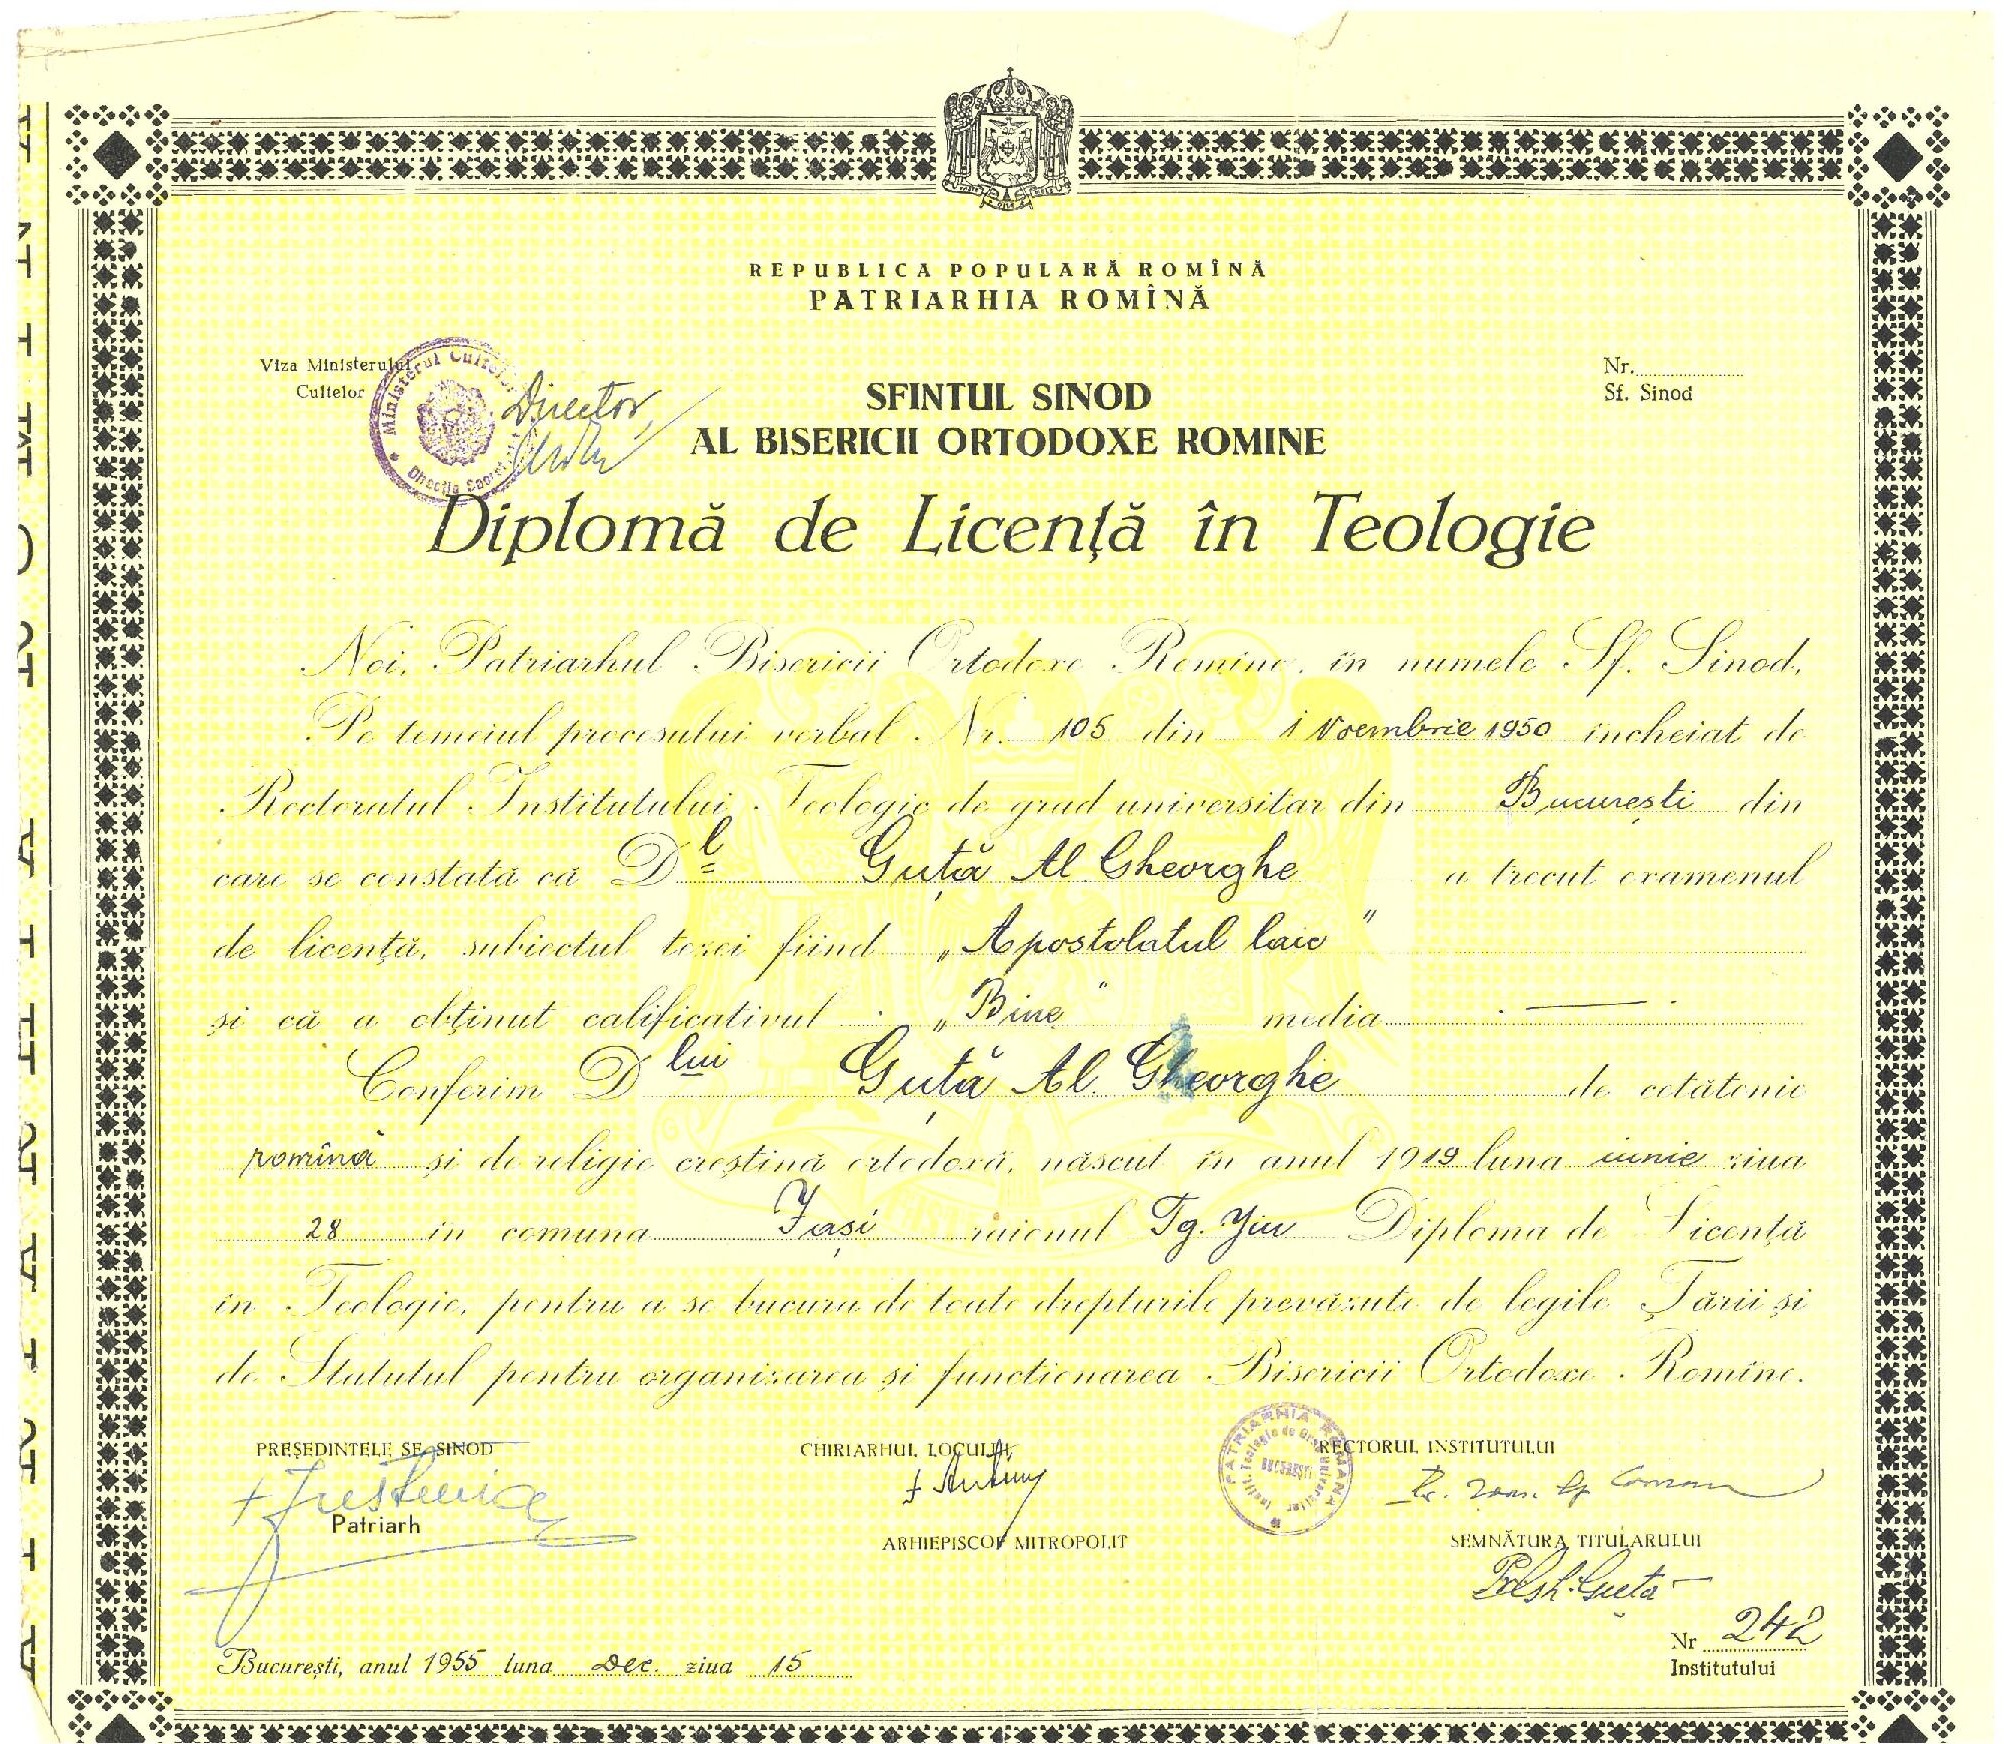 REPUBLICA POPULARĂ ROMÎNĂ
PATRIARHIA ROMÎNĂ
Viza Ministerului
Cultelor
Ministerul Cultelor
Direcția
Director,
Nr.
Sf. Sinod
SFINTUL SINOD
AL BISERICII ORTODOXE ROMINE
Diplomă de Licență în Teologie
Noi, Patriarhul Bisericii Ortodoxe Romîne, în numele Sf. Sinod,
Pe temeiul procesului verbal Nr. 105 din 1 Noembrie 1950 încheiat de
Rectoratul Institutului Teologic de grad universitar din București din
care se constată că Dl Guță Al Gheorghe a trecut examenul
de licență, subiectul tezei fiind „Apostolatul laic"
și că a obținut calificativul „Bine" media —
Conferim Dlui Guță Al. Gheorghe de cetățenie
romînă și de religie creștină ortodoxă, născut în anul 1919 luna iunie ziua
28 în comuna Iași raionul Tg. Jiu Diploma de Licență
în Teologie, pentru a se bucura de toate drepturile prevăzute de legile Țării și
de Statutul pentru organizarea și funcționarea Bisericii Ortodoxe Romîne.
PREȘEDINTELE SF. SINOD
CHIRIARHUL LOCULUI,
PATRIARHIA ROMANA
Instit. Teologic de Grad Universitar
BUCUREȘTI
RECTORUL INSTITUTULUI
+ Justinian
Patriarh
ARHIEPISCOP MITROPOLIT
SEMNĂTURA TITULARULUI
Nr 242
Institutului
București, anul 1955 luna Dec. ziua 15